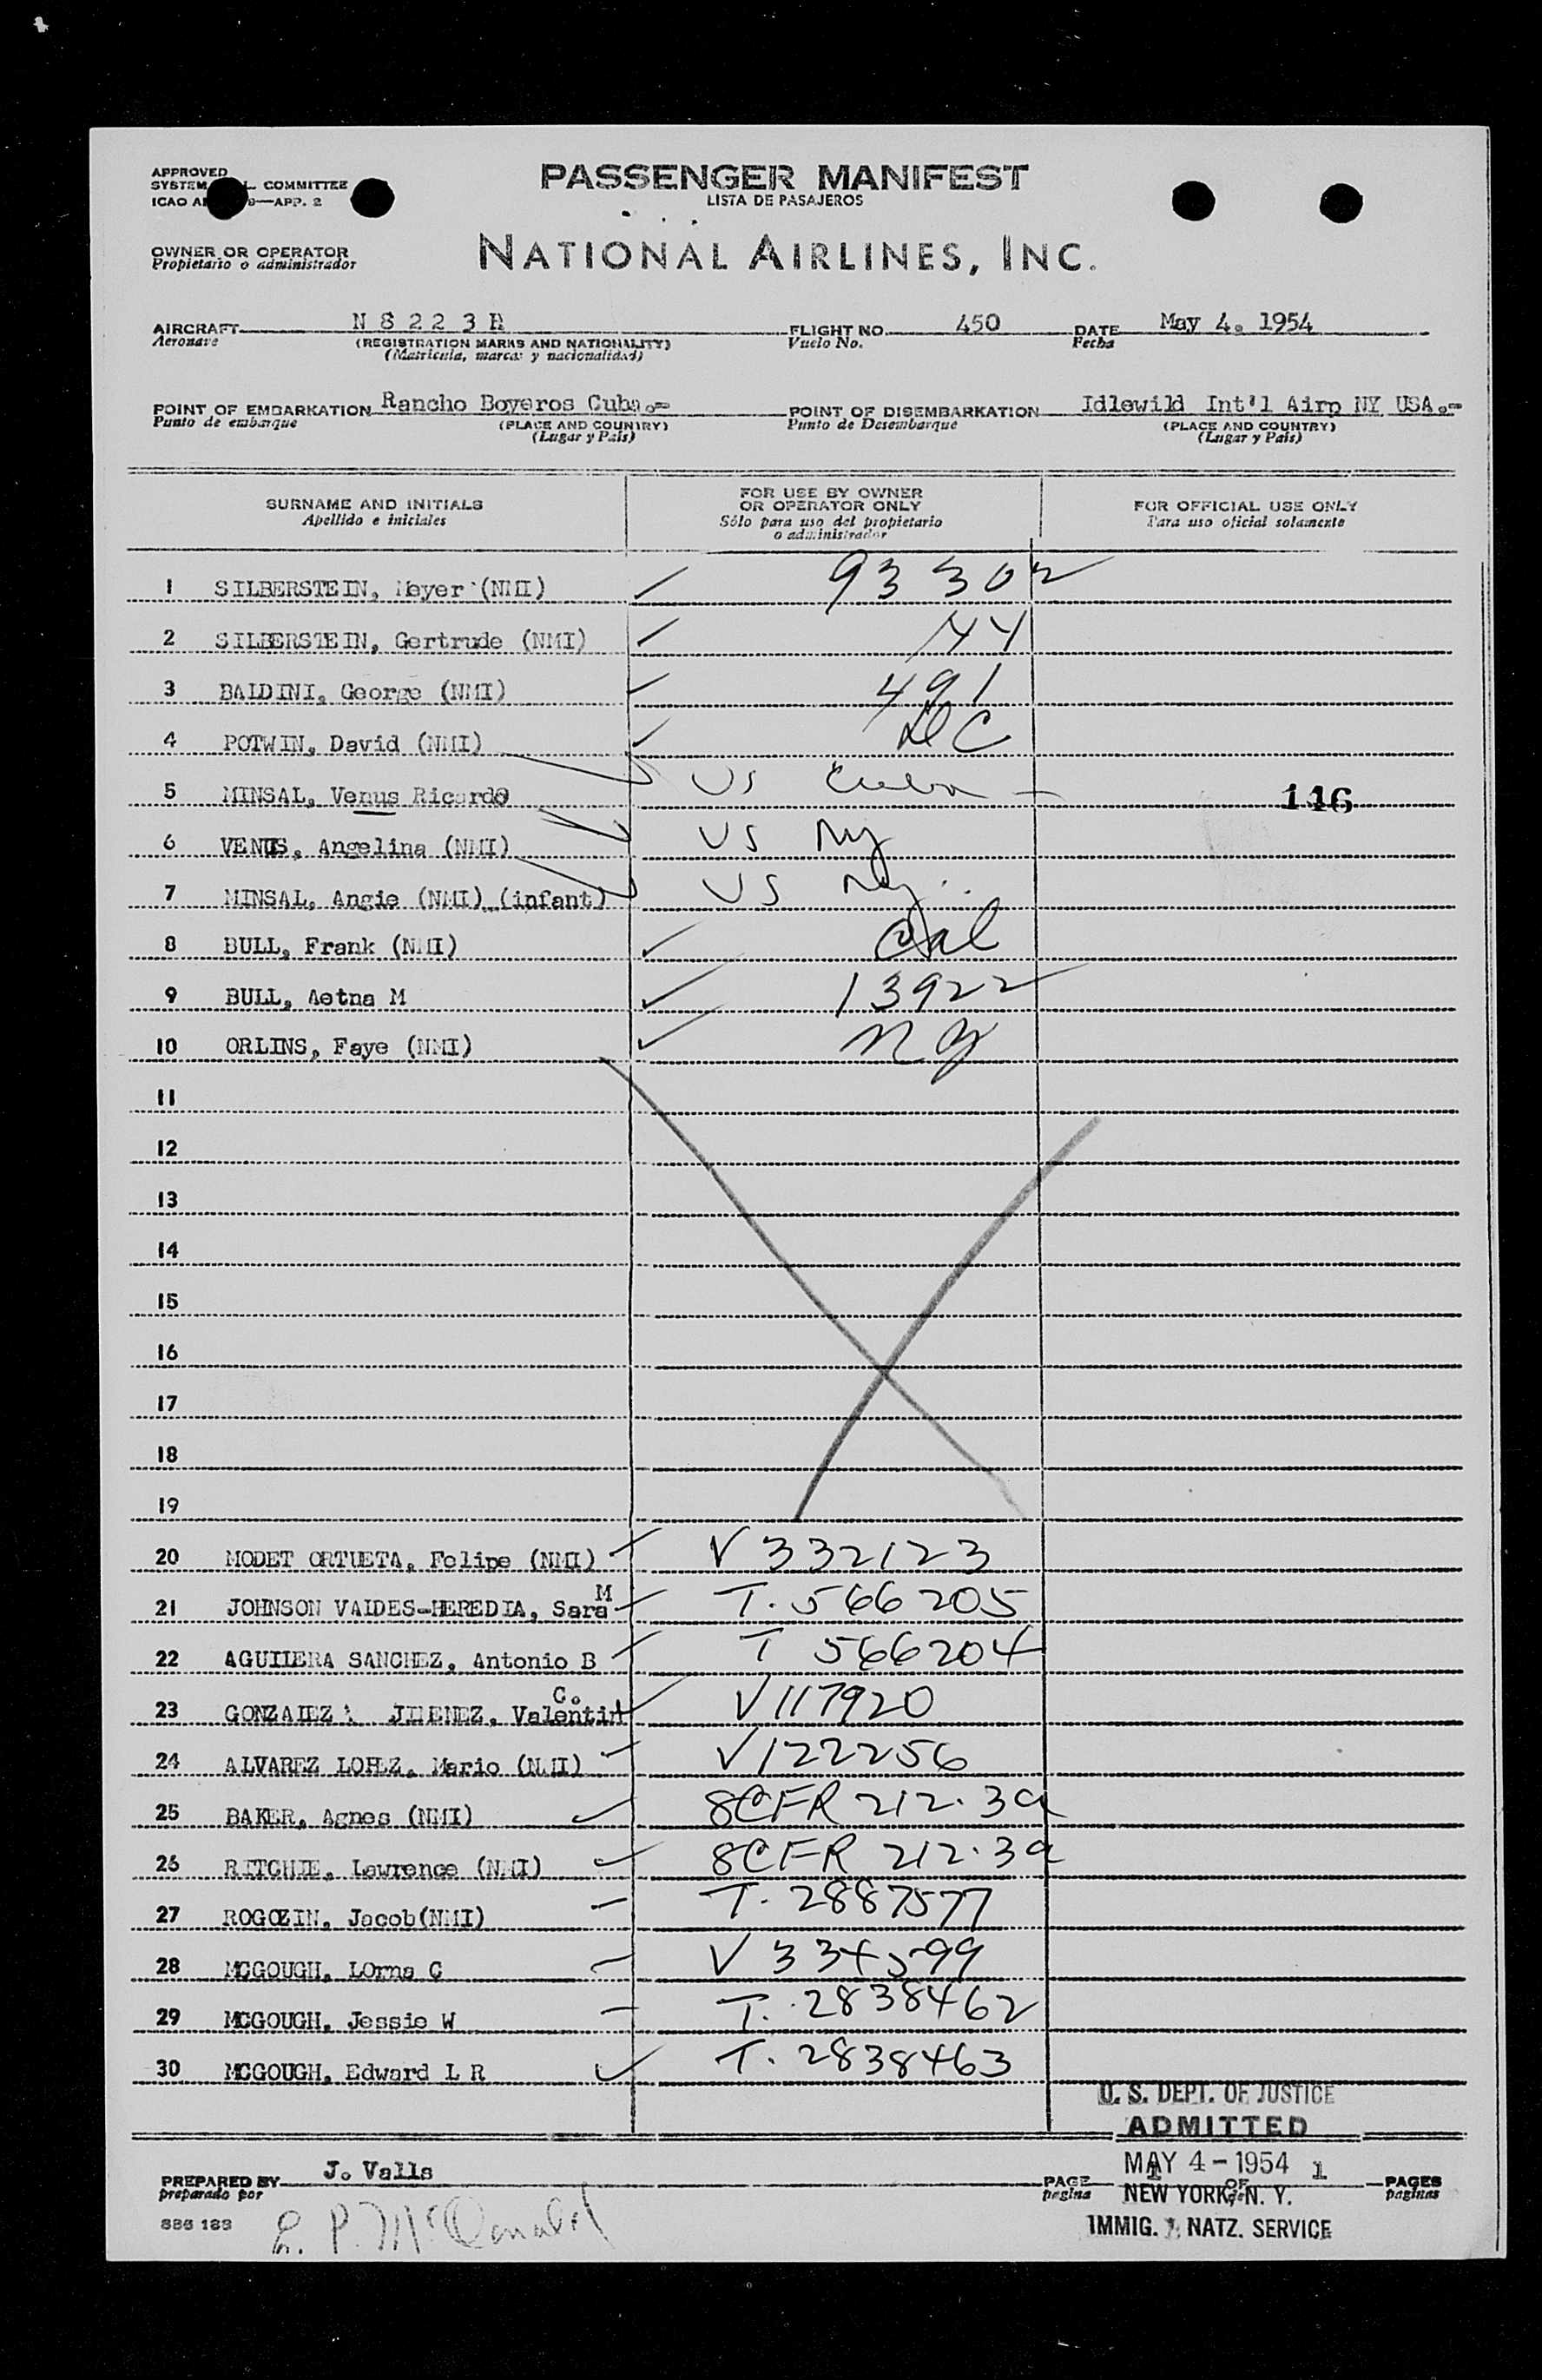 APPROVED
SYSTEM L. COMMITTEE
ICAO 9—APP. 2
PASSENGER MANIFEST
LISTA DE PASAJEROS
OWNER OR OPERATOR
Propietario o administrador
NATIONAL AIRLINES, INC.
AIRCRAFT N 8 2 2 3 H FLIGHT NO. 450 DATE May 4. 1954
Aeronave (REGISTRATION MARKS AND NATIONALITY) Vuelo No. Fecha
(Matricula, marcas y nacionalidad)
POINT OF EMBARKATION Rancho Boyeros Cuba.- POINT OF DISEMBARKATION Idlewild Int'l Airp NY USA.-
Punto de embarque (PLACE AND COUNTRY) Punto de Desembarque (PLACE AND COUNTRY)
(Lugar y Pais) (Lugar y Pais)
SURNAME AND INITIALS FOR USE BY OWNER OR OPERATOR ONLY FOR OFFICIAL USE ONLY
Apellido e iniciales Sólo para uso del propietario o administrador Para uso oficial solamente
1 SILBERSTEIN, Meyer (NMI) ✓ 93302
2 SILBERSTEIN, Gertrude (NMI) ✓ NY
3 BALDINI, George (NMI) ✓ 491
4 POTWIN, David (NMI) ✓ DC
5 MINSAL, Venus Ricardo US Cuba — 146
6 VENUS, Angelina (NMI) US NY
7 MINSAL, Angie (NMI) (infant) US NY
8 BULL, Frank (NMI) ✓ Cal
9 BULL, Aetna M ✓ 13922
10 ORLINS, Faye (NMI) ✓ NY
11
12
13
14
15
16
17
18
19
20 MODET ORTUETA, Felipe (NMI) V 332123
21 JOHNSON VALDES-HEREDIA, Sara M T. 566205
22 AGUILERA SANCHEZ, Antonio B T 566204
23 GONZALEZ JIMENEZ, Valentin C. V117920
24 ALVAREZ LOPEZ, Mario (NMI) V122256
25 BAKER, Agnes (NMI) ✓ 8CFR 212.3a
26 RITCHIE, Lawrence (NMI) 8CFR 212.3a
27 Jacob(NMI) T. 2887577
28 MCGOUGH, LOrna C V 334599
29 MCGOUGH, Jessie W T. 2838462
30 MCGOUGH, Edward L R ✓ T. 2838463
U. S. DEPT. OF JUSTICE
ADMITTED
MAY 4 - 1954
NEW YORK, N. Y.
IMMIG. & NATZ. SERVICE
PREPARED BY J. Valls PAGE 1 OF 1 PAGES
preparado por pagina de paginas
886 183 L. P. McDonald